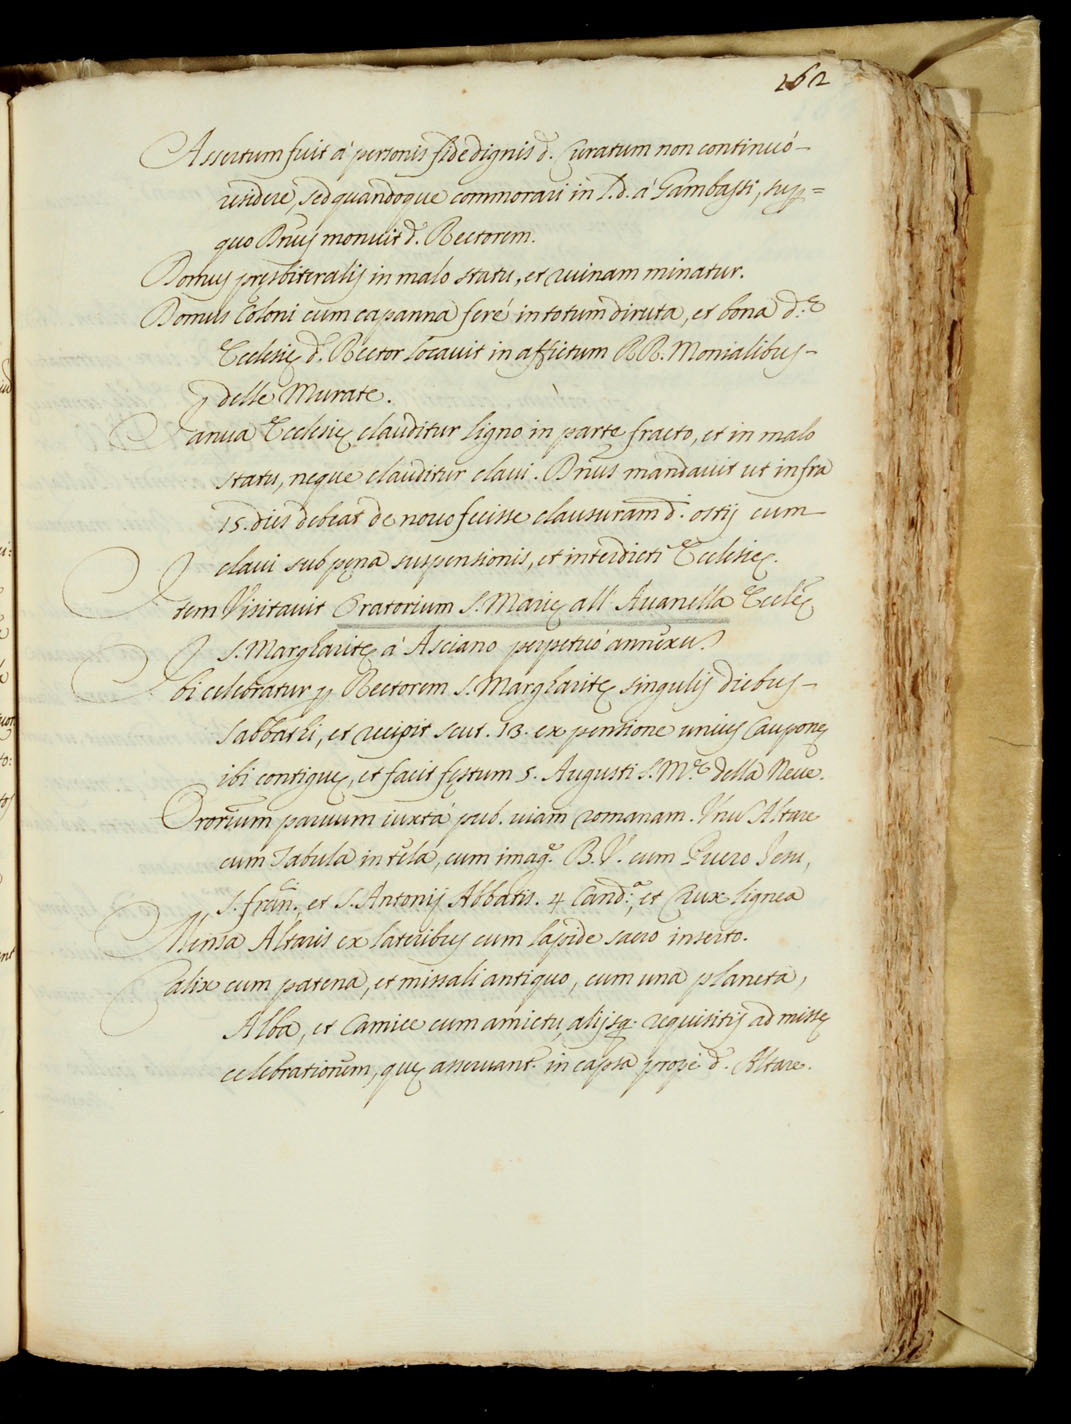 262
Assertum fuit à personis fide dignis d. Curatum non continuó
residere, sed quandoque commorari in T.d. à Gambassi, sup=
quo Dn̄us monuit d. Rectorem.
Domus presbiteralis in malo statu, et ruinam minatur.
Domus Coloni cum capanna feré in totum diruta, et bona d.ę
Ecclesię d. Rector locavit in affictum RR. Monialibus
delle Murate.
Ianua Ecclesię clauditur ligno in parte fracto, et in malo
statu, neque clauditur clavi. Dn̄us mandavit ut infra
15. dies debeat de novo fecisse clausuram d.i ostij cum
clavi sub pęna suspensionis, et interdicti Ecclesię.
Item Visitavit Oratorium S. Marię all' Avanella Ecclę
S. Margharitę à Asciano perpetuó annexū.
Ibi celebratur p Rectorem S. Margharitę singulis diebus
sabbathi, et recipit scut. 13. ex pensione unius Cauponę
ibi contiguę, et facit fęstum 5. Augusti S. M.ę della Neve.
Ororium parvum iuxtá pub. viam romanam. Vnū Altare
cum Tabula in tela, cum imag.e B. V. cum Puero Iesu,
S. Fran.ci, et S. Antonij Abbatis. 4 Cand.a, et Crux lignea
Mensa Altaris ex lateribus cum lapide sacro inserto.
Calix cum patena, et missali antiquo, cum una planeta,
Alba, et Camice cum amictu, alijsq. requisitis ad missę
celebrationem, quę asservant. in capsa prope d. Altare.